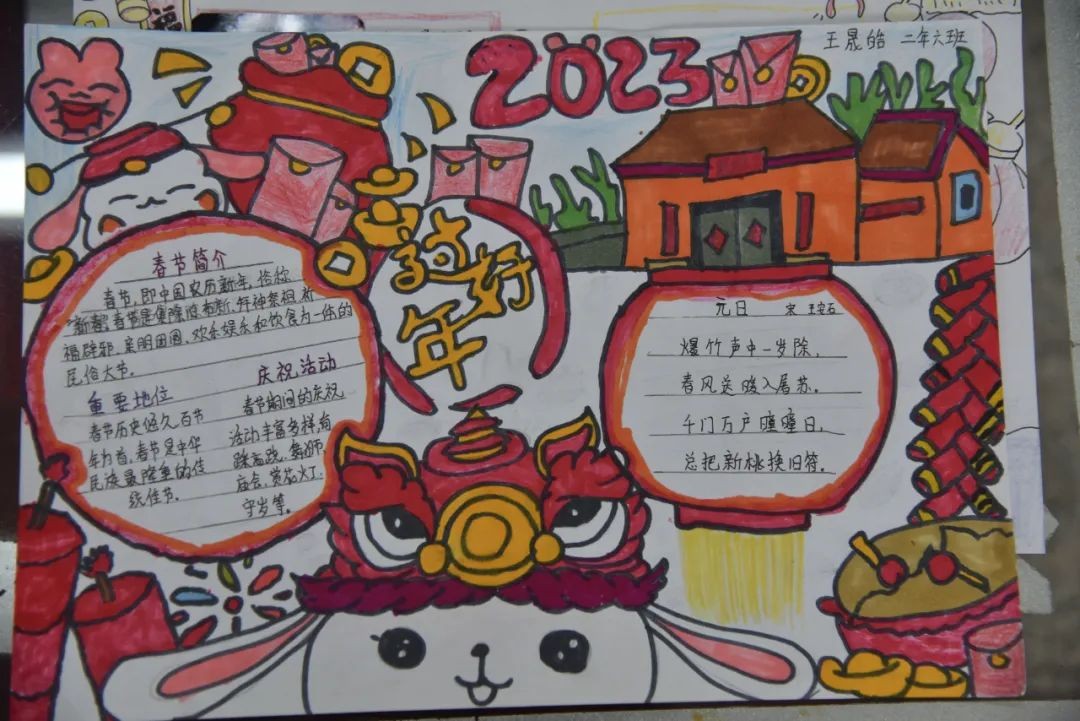 2023
王晟皓 二年六班
过好年
春节简介
春节,即中国农历新年,俗称
"新春",春节是集除旧布新、拜神祭祖、祈
福辟邪、亲朋团圆、欢乐娱乐和饮食为一体的
民俗大节。
重要地位
春节历史悠久,百节
年为首,春节是中华
民族最隆重的传
统佳节。
庆祝活动
春节期间的庆祝
活动丰富多样,有
踩高跷、舞狮、
庙会、赏花灯
守岁等。
元日 宋 王安石
爆竹声中一岁除,
春风送暖入屠苏。
千门万户曈曈日,
总把新桃换旧符。